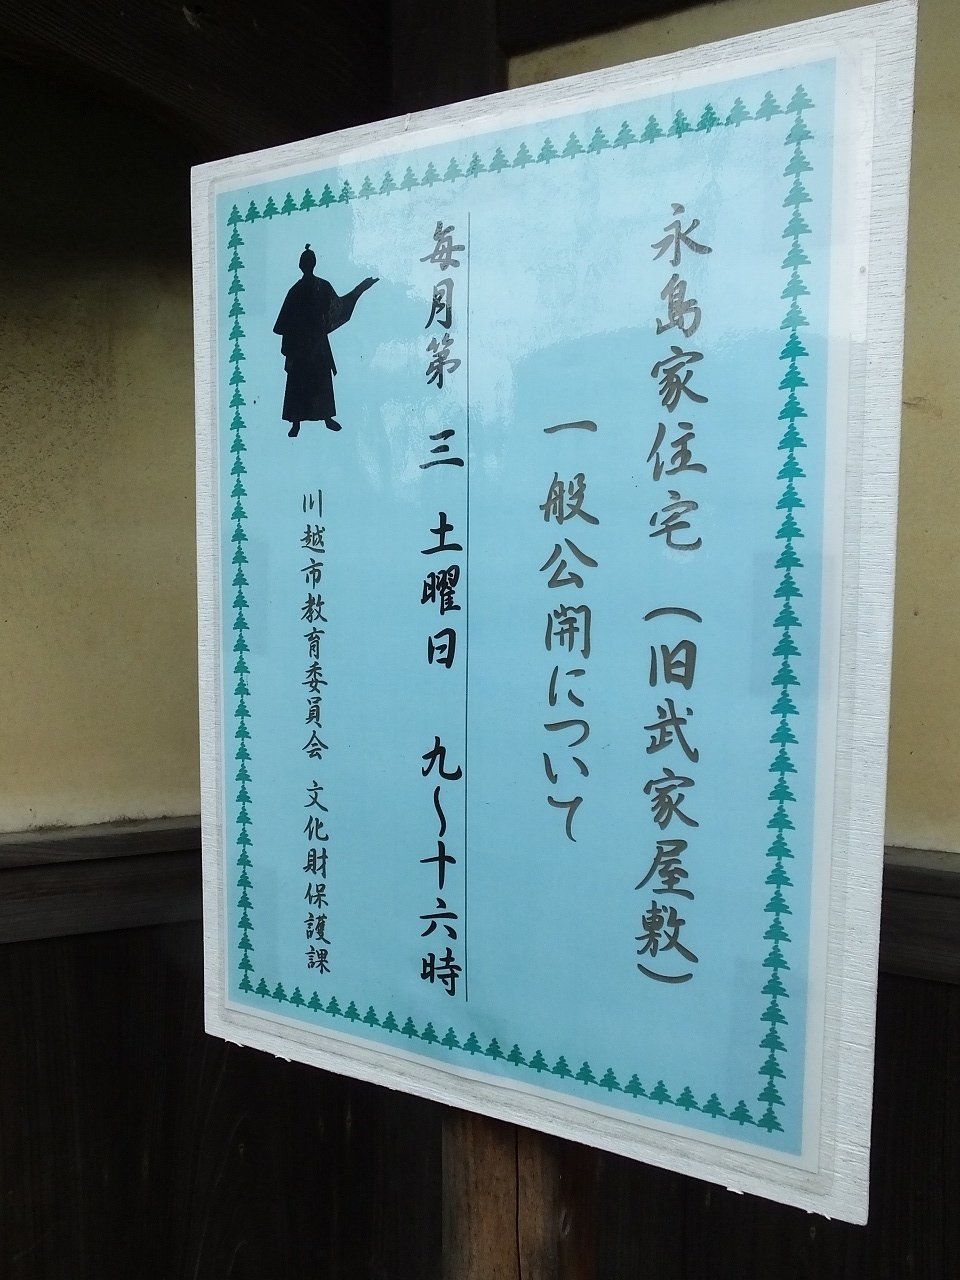 永島家住宅（旧武家屋敷）
一般公開について
毎月第 三 土曜日 九～十六時
川越市教育委員会 文化財保護課